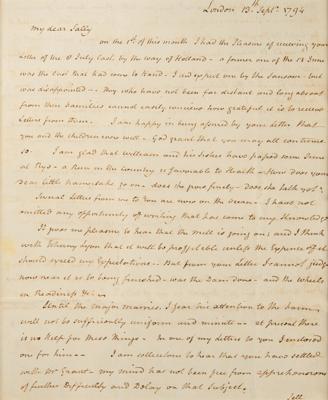 London 13th Septr. 1794
My dear Sally
on the 1st of this month I had the Pleasure of receiving your
Letter of the 8 July last, by the way of Holland - a former one of the 18 June
was the last that had come to Hand. I did expect one by the Sansom but
was disappointed - They who have not been far distant and long absent
from their Families cannot easily conceive how grateful it is to receive
Letters from them. I am happy in being assured by your Letter that
you and the children were well - God grant that you may all continue
so. I am glad that William and his Sisters have passed some Time
at Rye - a Run in the country is favorable to Health - How does your
dear little namesake go on - does she grow finely - Does she talk yet?
Several Letters from me to you are now on the ocean - I have not
omitted any opportunity of writing that has come to my Knowledge
It gives me pleasure to hear that the Mill is going on; and I think
with Johnny Lyon that it will be profitable unless the Expence of it
should exceed my Expectations - But from your Letter I cannot judge
how near it is to being finished - was the Dam done - and the Wheels
in Readiness &c -
Until the major marries, I fear his attention to the Farm
will not be sufficiently uniform and minute - at present there
is no help for these Things - In one of my Letters to you I enclosed
one for him - I am sollicitous to hear that you have settled
with Mr Grant - my mind has not been free from apprehensions
of further Difficulty and Delay on that Subject.